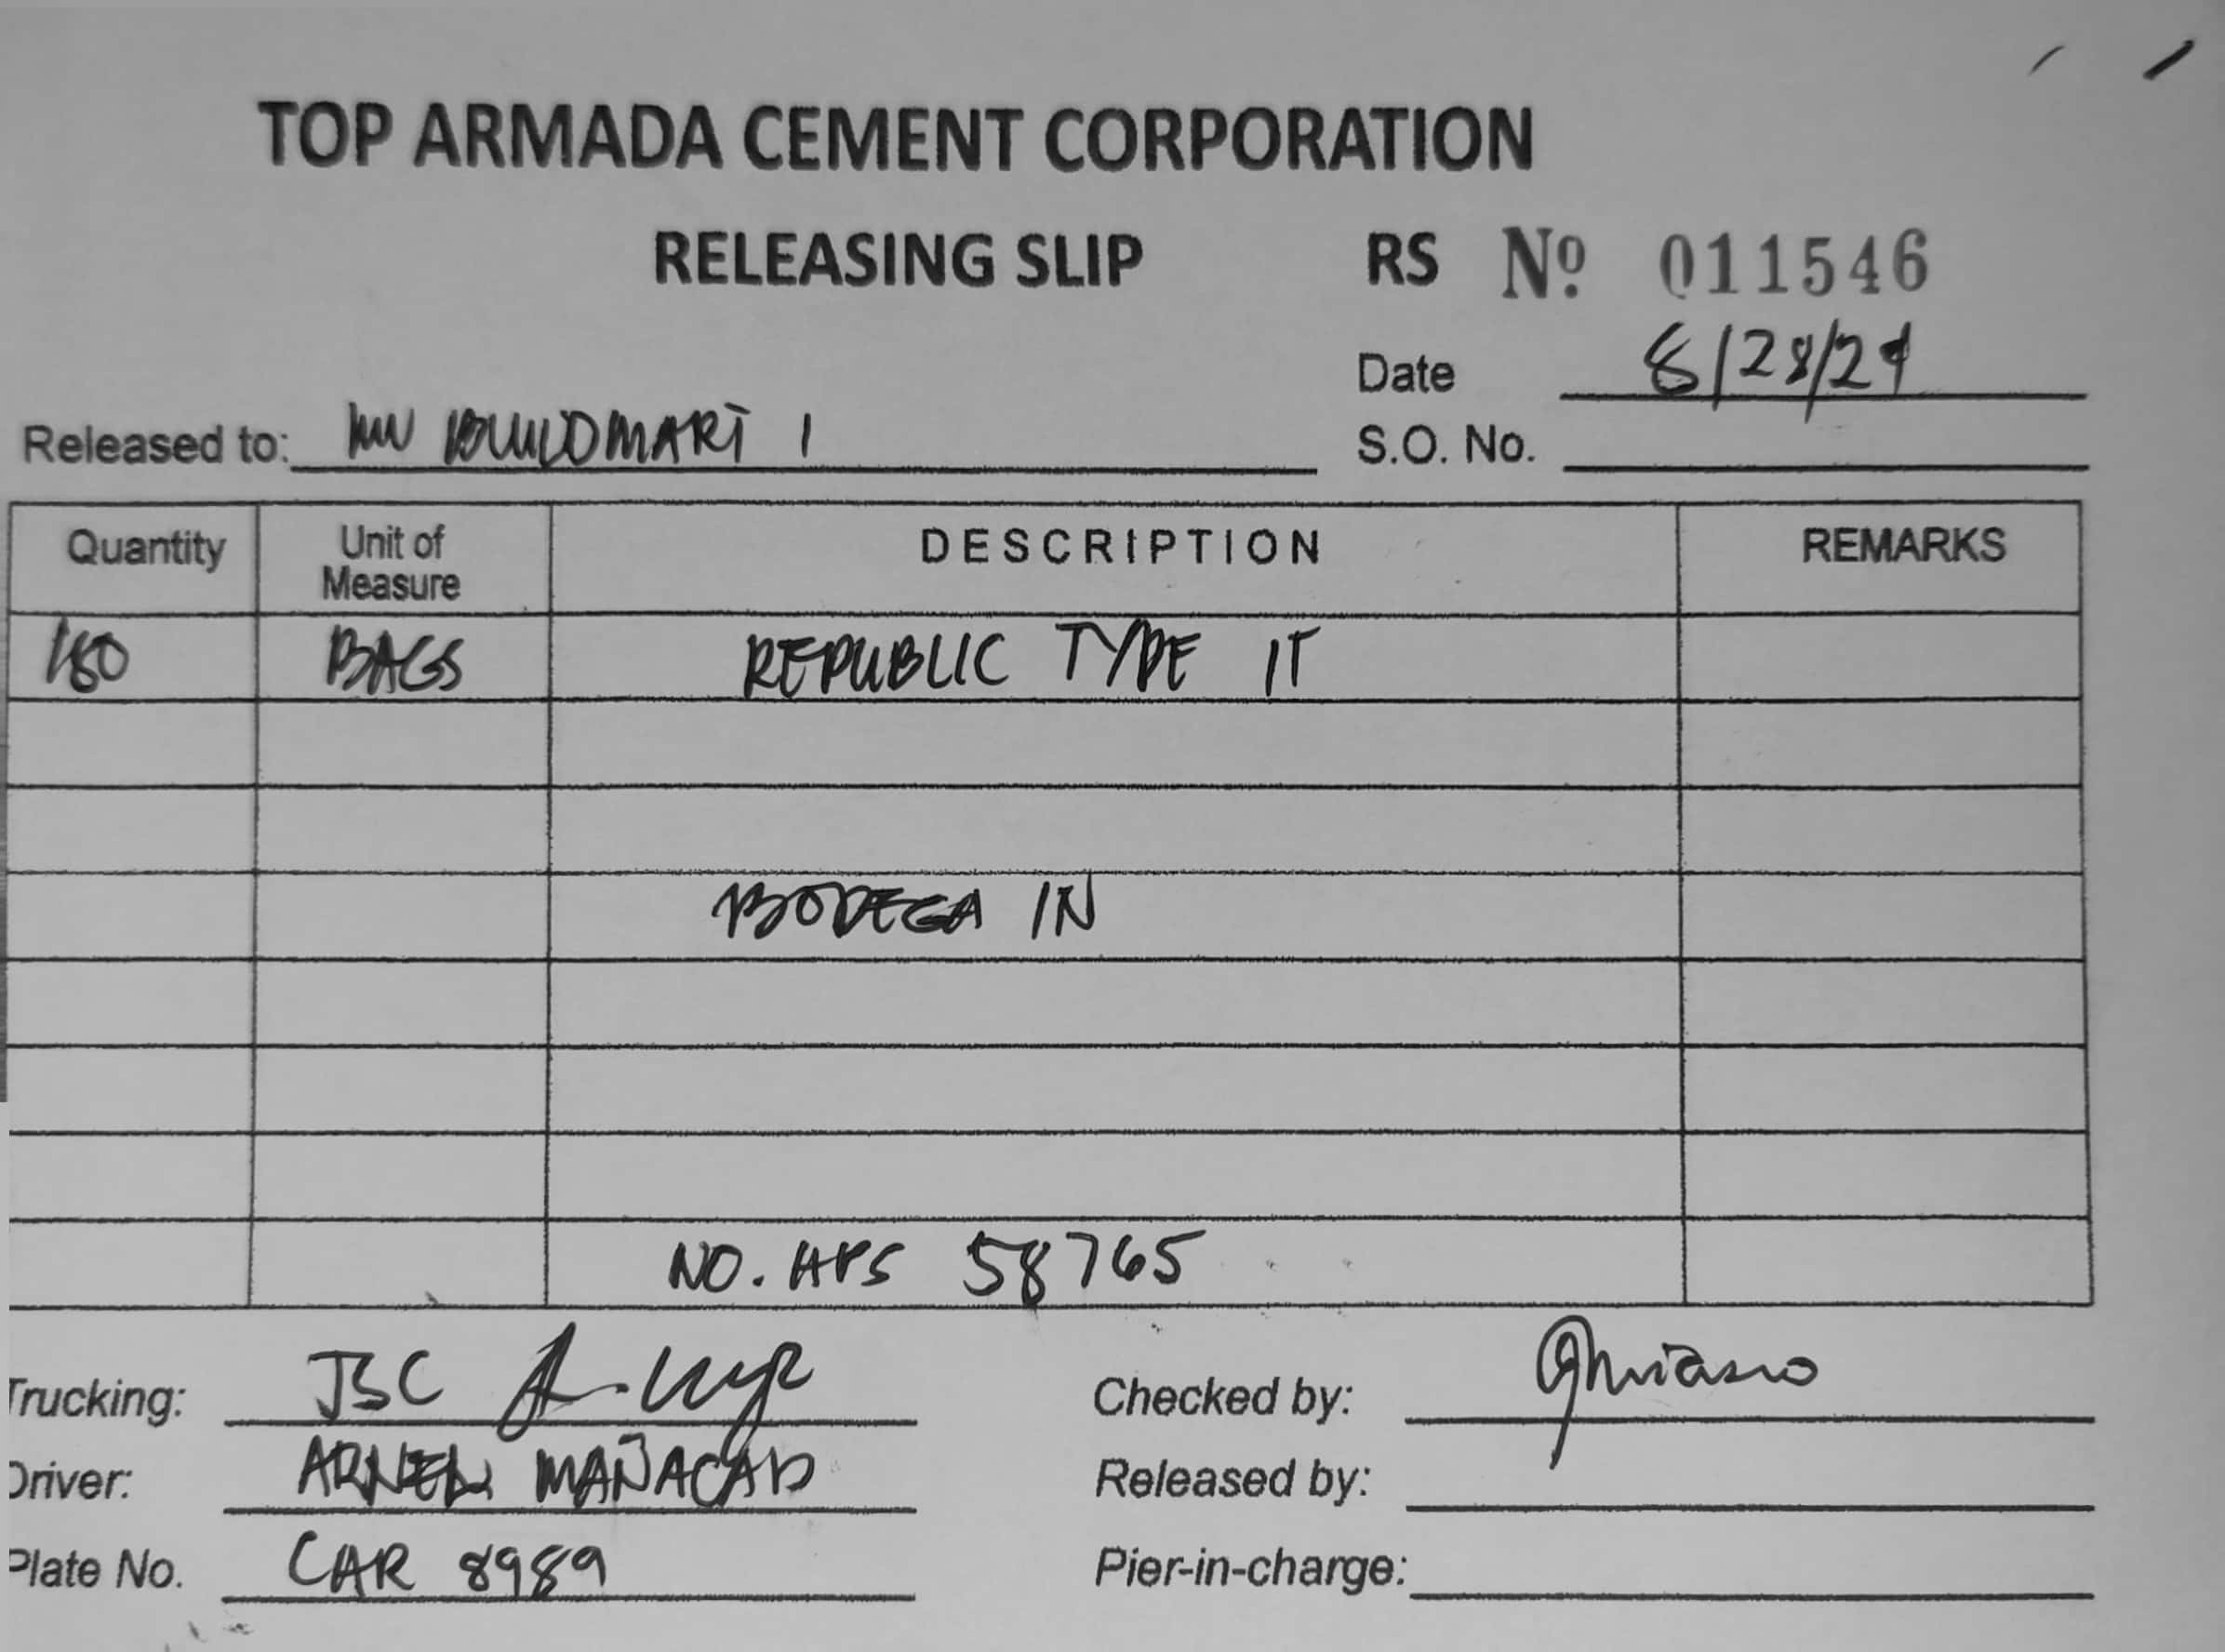 TOP ARMADA CEMENT CORPORATION
RELEASING SLIP RS Nº 011546
Date 8/28/24
Released to: MV BUILDMART 1 S.O. No.
Quantity Unit of Measure DESCRIPTION REMARKS
180 BAGS REPUBLIC TYPE 1T
BODEGA IN
NO. ATS 58765
Trucking: JSC Checked by:
Driver: ARNEL MAÑACAP Released by:
Plate No. CAR 8989 Pier-in-charge: